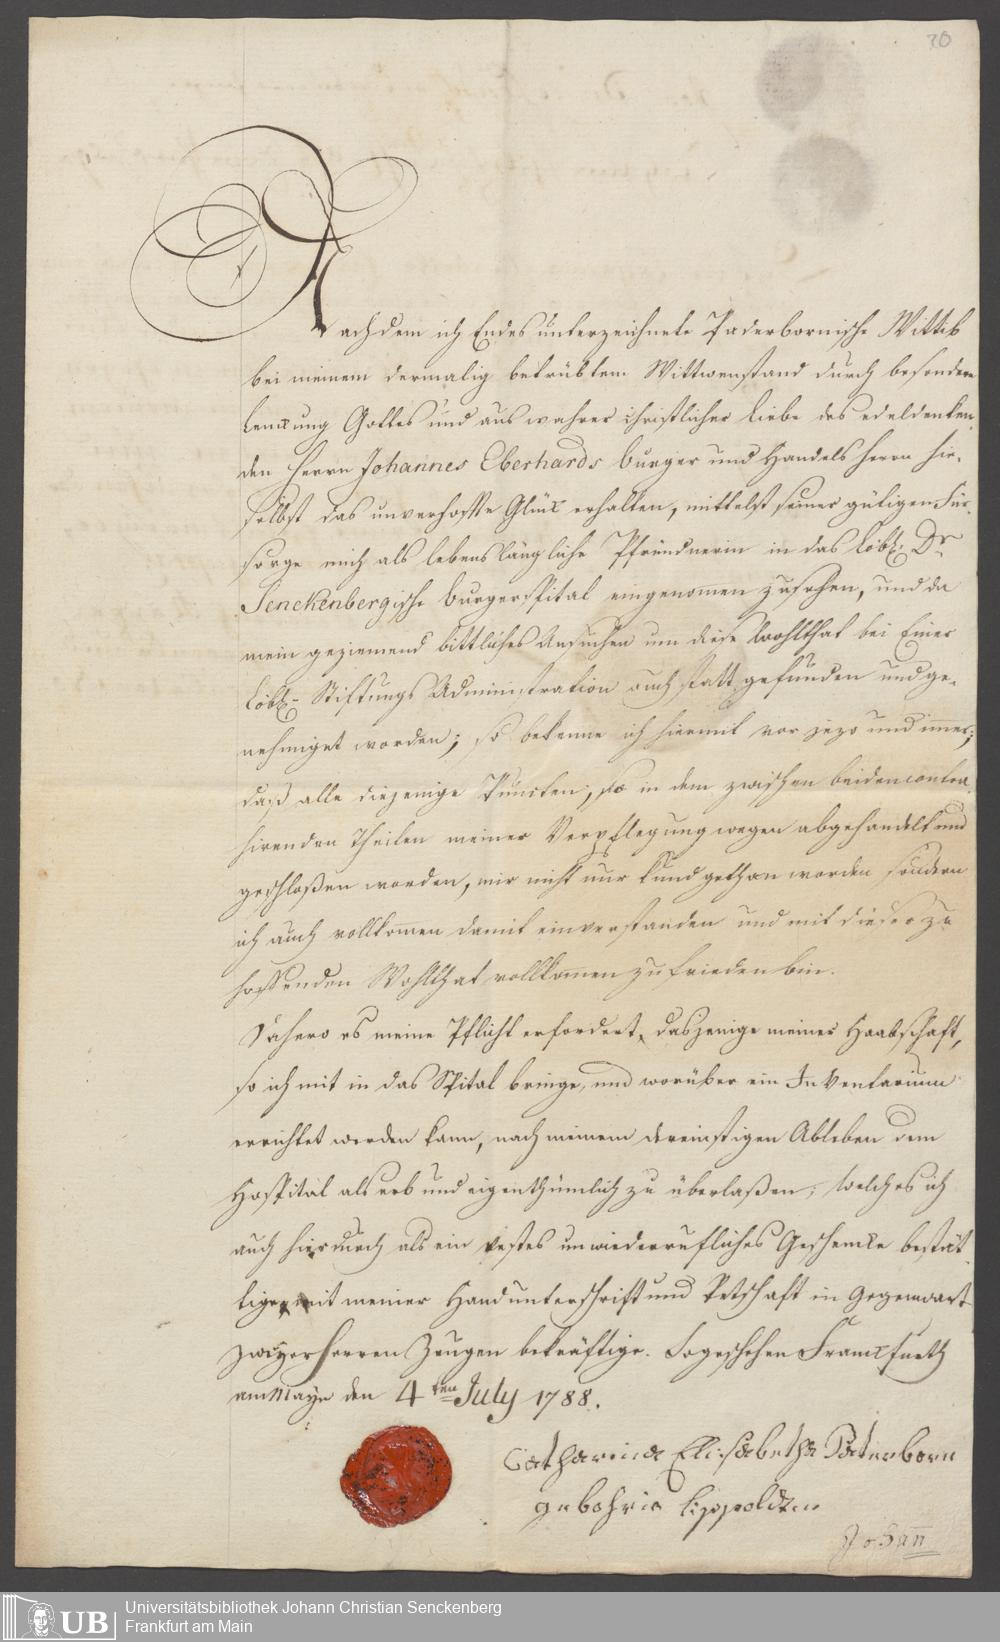 70
Nachdem ich Endes unterzeichnete Paderbornische Wittib
bei meinem dermalig betrübtem Wittwenstand durch besondere
Lenkung Gottes und aus wahrer christlicher Liebe des edeldenken-
den Herrn Johannes Eberhards burger und Handels Herrn hie-
selbst das unverhoffte Glük erhalten, mittelst seiner gütigen Für-
sorge mich als lebenslängliche Pfründnerin in das Löbl. Dr.
Senckenbergische burgerspital eingenommen zu sehen, und da
mein geziemend bittliches Ansuchen um diese Wohlthat bei Einer
Löbl. Stiftungs Administration auch statt gefunden und ge-
nehmiget worden; so bekenne ich hiermit vor jezo und immer;
daß alle diejenige Puncten, so in dem zwischen beiden contra-
hirenden Theilen meiner Verpflegung wegen abgehandelt und
geschloßen worden, mir nicht nur kund gethan worden sondern
ich auch vollkommen damit einverstanden und mit dieser zu
hoffenden Wohlthat vollkommen zufrieden bin.
Dahero es meine Pflicht erfordert, dasjenige meiner Haabschaft,
so ich mit in das Spital bringe, und worüber ein Inventarium
errichtet werden kann, nach meinem dereinstigen Ableben dem
Hospital als erb und eigenthümlich zu überlaßen; welches ich
auch hierdurch als ein festes unwiederrufliches Geschencke bestät-
tige, mit meiner Handunterschrift und Petschaft in Gegenwart
zweyer Herren Zeugen bekräftige. So geschehen Franckfurth
am Mayn den 4ten July 1788.
Catharina Elisabetha Paterborn
gebohrne Lippoldten
Johann
UB
Universitätsbibliothek Johann Christian Senckenberg
Frankfurt am Main